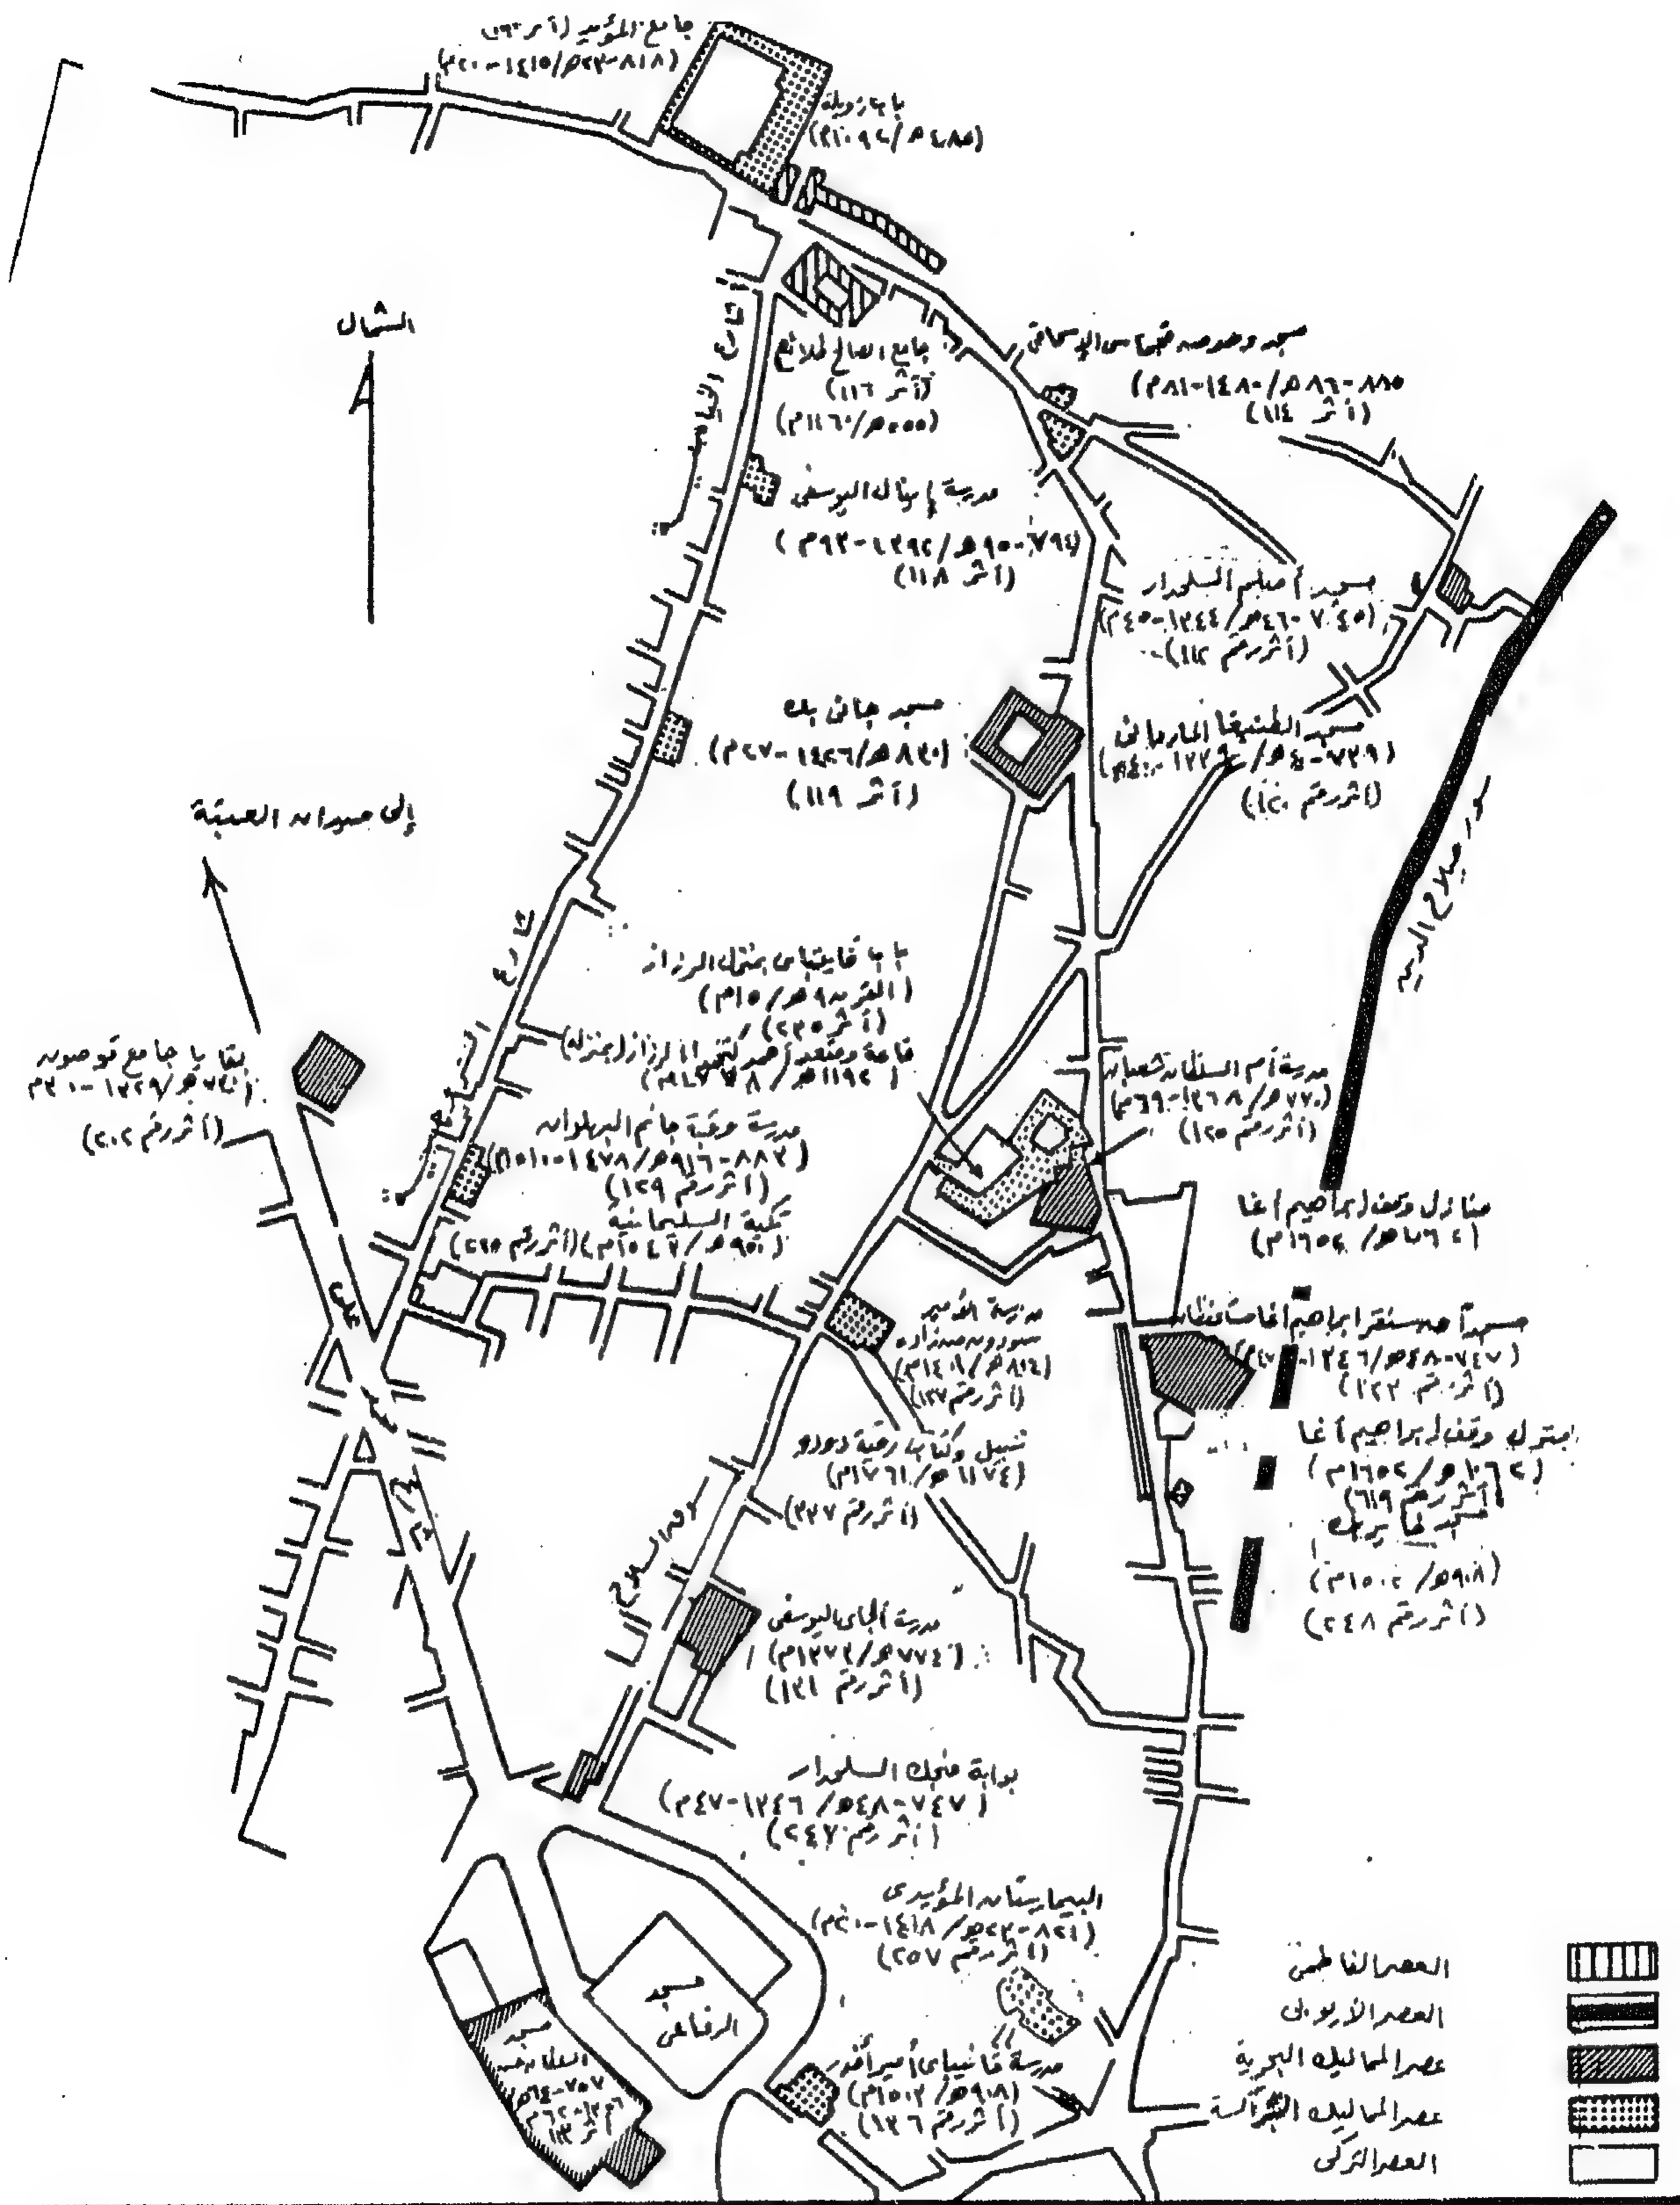 جامع المؤيد (أثر ١٩٠)
(٨١٨-٢٣هـ/١٤١٥-٢٠م)
باب زويلة
(٤٨٥هـ/١٠٩٢م)
الشمال
شارع الخيامية
جامع الصالح طلائع
(أثر ١١٦)
(٥٥٥هـ/١١٦٠م)
مسجد وحوض قجماس الإسحاقى
٨٨٥-٨٦هـ/١٤٨٠-٨١م)
(أثر ١١٤)
مدرسة إينال اليوسفى
(٧٩٤-٩٥هـ/١٣٩٢-٩٣م)
(أثر ١١٨)
مسجد أصلم السلحدار
(٧٤٥-٤٦هـ/١٣٤٤-٤٥م)
(أثر رقم ١١٢)
مسجد جانى بك
(٨٣٠هـ/١٤٢٦-٢٧م)
(أثر ١١٩)
مسجد الطنبغا الماردانى
(٧٣٩-٤٠هـ/١٣٣٩-٤٠م)
(أثر رقم ١٢٠)
سور صلاح الدين
إلى ميدان العتبة
شارع
السروجية
باب قايتباى بمنزل الرزاز
(القرن ٩هـ/١٥م)
(أثر ٢٣٥)
قاعة ومقعد أحمد كتخدا الرزاز (بمنزله)
(١١٩٢هـ/١٧٧٨م)
بقايا جامع قوصون
(٧٣٠هـ/١٣٢٩-٣٠م
(أثر رقم ٢٠٢)
مدرسة أم السلطان شعبان
(٧٧٠هـ/١٣٦٨-٦٩م)
(أثر رقم ١٢٥)
مدرسة وقبة جانم البهلوان
(٨٨٣-٩١٦هـ/١٤٧٨-١٥١٠م)
(أثر رقم ١٢٩)
تكية السليمانية
(٩٥٠هـ/١٥٤٣م) (أثر رقم ٢٢٥)
منازل وقف إبراهيم أغا
(١٠٦٢هـ/١٦٥٢م)
محمد
على
مدرسة الأمير
سودون من زاده
(٨٠٤هـ/١٤٠١م)
(أثر رقم ١٢٧)
مسجد آق سنقر إبراهيم أغا مستحفظان
(٧٤٧-٤٨هـ/١٣٤٦-٤٧م)
(أثر رقم ١٢٣)
سبيل وكتاب رقية دودو
(١١٧٤هـ/١٧٦١م)
(أثر رقم ٣٣٧)
منزل وقف إبراهيم أغا
(١٠٦٢هـ/١٦٥٢م)
(أثر رقم ٦١٩)
مسجد خاير بك
(٩٠٨هـ/١٥٠٢م)
(أثر رقم ٢٤٨)
سوق السلاح
مدرسة ألجاى اليوسفى
(٧٧٤هـ/١٣٧٣م)
(أثر رقم ١٣١)
بوابة منجك السلحدار
(٧٤٧-٤٨هـ/١٣٤٦-٤٧م)
(أثر رقم ٢٤٧)
البيمارستان المؤيدى
(٨٢١-٢٣هـ/١٤١٨-٢٠م)
(أثر رقم ٢٥٧)
مسجد
الرفاعى
مسجد
السلطان حسن
٧٥٧-٦٤هـ
١٣٥٦-٦٢م
مدرسة قانيباى أمير أخور
(٩٠٨هـ/١٥٠٣م)
(أثر رقم ١٣٦)
العصر الفاطمى
العصر الأيوبى
عصر المماليك البحرية
عصر المماليك الشراكسة
العصر التركى